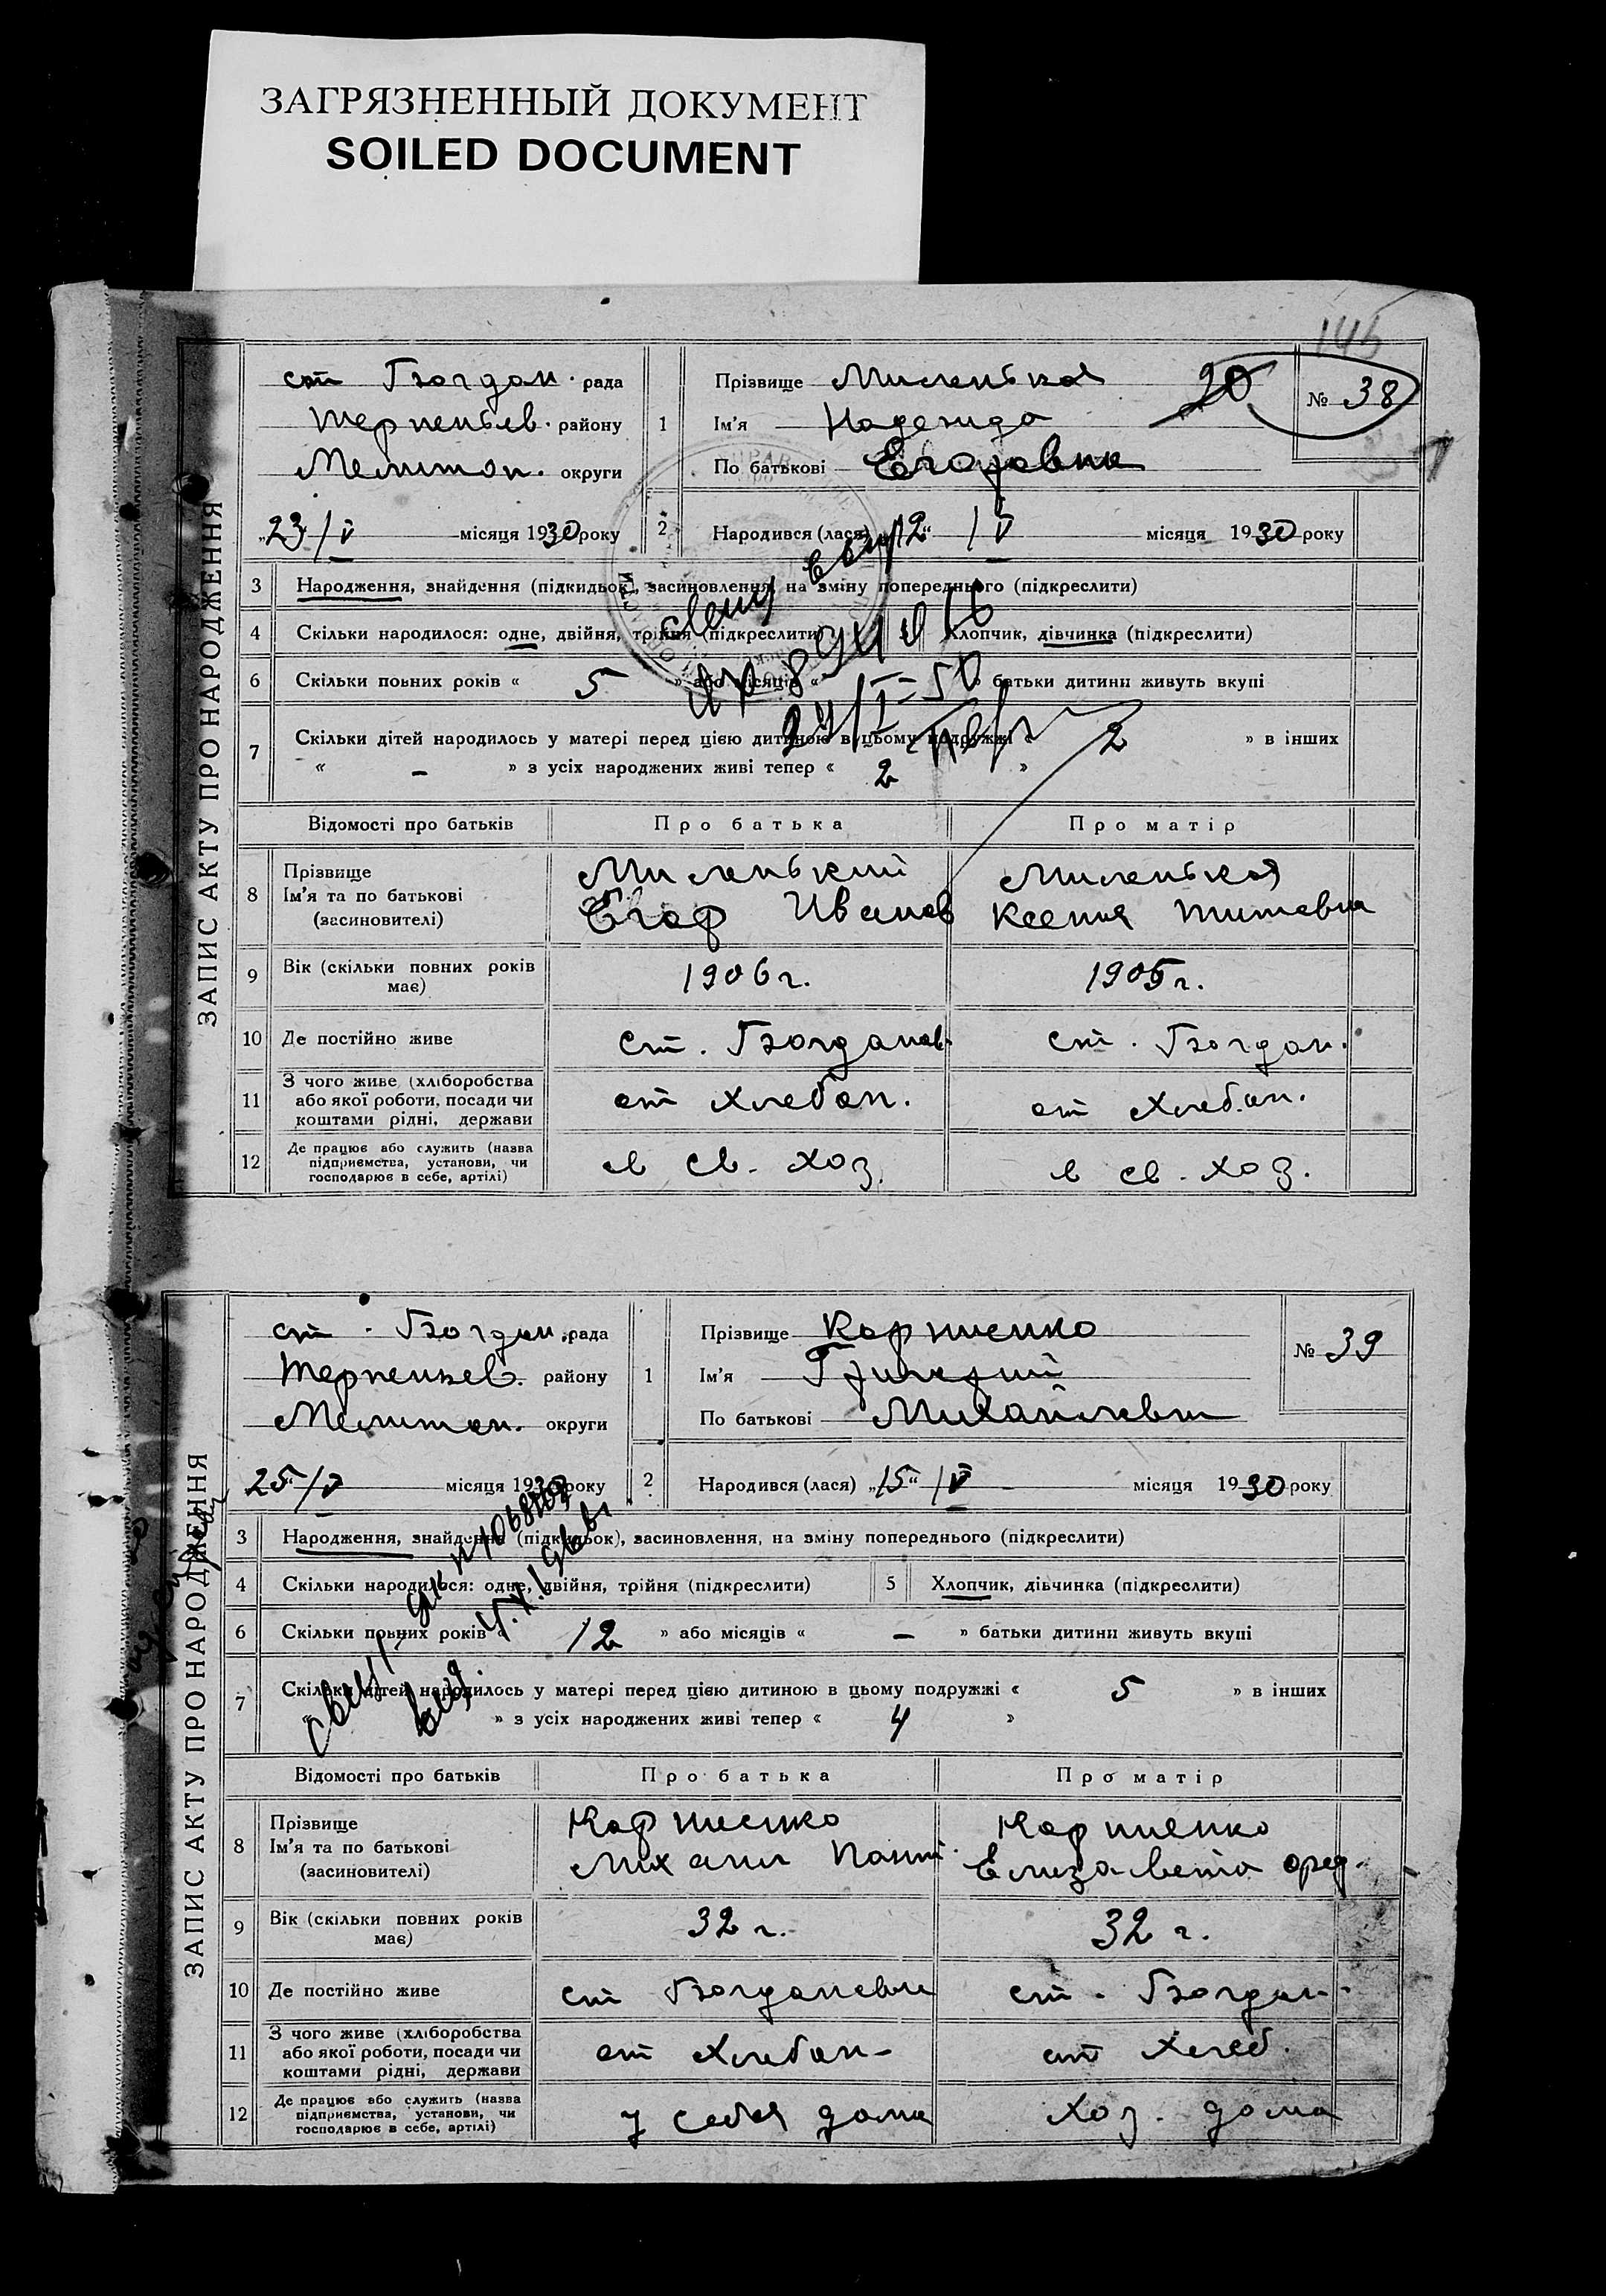 ЗАГРЯЗНЕННЫЙ ДОКУМЕНТ
SOILED DOCUMENT
145
ЗАПИС АКТУ ПРО НАРОДЖЕННЯ
ст Богдан. рада
Терпеньев. району
Мелитоп. округи
„23/V місяця 1930 року
1
Прізвище Миленькая
Ім'я Надежда
По батькові Егоровна
20
№ 38
2
Народився (лася) „12“ /V місяця 1930 року
3 Народження, знайдення (підкидьок), засиновлення, на зміну попереднього (підкреслити)
4 Скільки народилося: одне, двійня, трійня (підкреслити) Хлопчик, дівчинка (підкреслити)
6 Скільки повних років « 5 » або місяців « » батьки дитини живуть вкупі
24/I-50
7 Скільки дітей народилось у матері перед цією дитиною в цьому подружжі « 2 » в інших
« – » з усіх народжених живі тепер « 2 »
Відомості про батьків Про батька Про матір
8 Прізвище Ім'я та по батькові (засиновителі)
Миленький Егор Иванов
Миленькая Ксения Титовна
9 Вік (скільки повних років має) 1906 г. 1905 г.
10 Де постійно живе ст. Богданов. ст. Богдан.
11 З чого живе (хліборобства або якої роботи, посади чи коштами рідні, держави от хлебоп. от хлебоп.
12 Де працює або служить (назва підприємства, установи, чи господарює в себе, артілі) в св. хоз. в св. хоз.
ЗАПИС АКТУ ПРО НАРОДЖЕННЯ
ст. Богдан. рада
Терпеньев. району
Мелитоп. округи
25/V місяця 1930 року
1
Прізвище Карпшенко
Ім'я Григорий
По батькові Михайлович
№ 39
2
Народився (лася) „15“ /V місяця 1930 року
3 Народження, знайдення (підкидьок), засиновлення, на зміну попереднього (підкреслити)
4 Скільки народилося: одне, двійня, трійня (підкреслити) 5 Хлопчик, дівчинка (підкреслити)
6 Скільки повних років « 12 » або місяців « – » батьки дитини живуть вкупі
7 Скільки дітей народилось у матері перед цією дитиною в цьому подружжі « 5 » в інших
« » з усіх народжених живі тепер « 4 »
Відомості про батьків Про батька Про матір
8 Прізвище Ім'я та по батькові (засиновителі)
Карпшенко Михаил
Карпшенко Елизавета
9 Вік (скільки повних років має) 32 г. 32 г.
10 Де постійно живе ст Богдановке ст. Богдан.
11 З чого живе (хліборобства або якої роботи, посади чи коштами рідні, держави от хлебоп. от хлеб.
12 Де працює або служить (назва підприємства, установи, чи господарює в себе, артілі) у себя дома хоз. дома